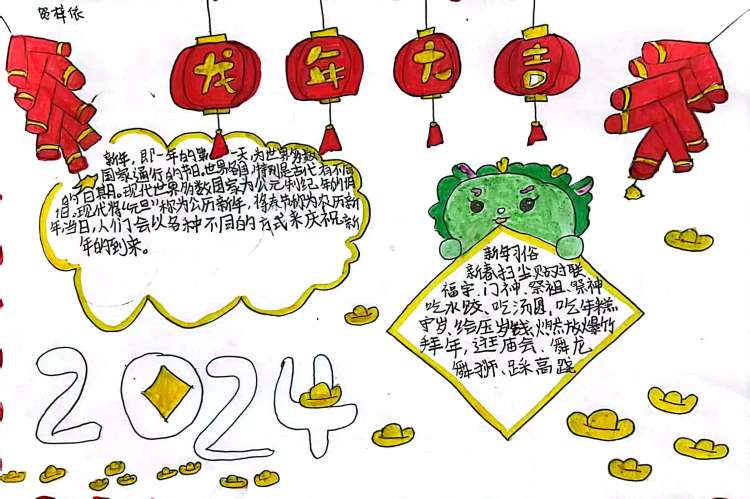 贺梓依
龙年大吉
新年，即一年的第一天，为世界多数
国家通行的节日。世界各国特别是古代有不同
的日期。现代世界多数国家为公元制纪年的1月
1日。现代将“元旦”称为公历新年，将春节称为农历新
年当日，人们会以各种不同的方式来庆祝新
年的到来。
新年习俗
新春扫尘贴对联
福字、门神、祭祖、祭神
吃水饺、吃汤圆，吃年糕
守岁、给压岁钱、燃放爆竹
拜年，逛庙会、舞龙
舞狮、踩高跷
2024